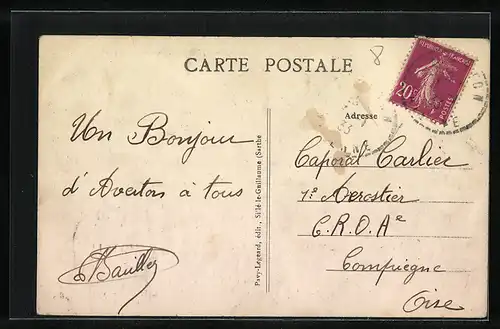 8
CARTE POSTALE
REPUBLIQUE FRANÇAISE
20c
POSTES
Adresse
Un Bonjour
d'Averton à tous
Bailley
Pavy-Legeard, édit., Sillé-le-Guillaume (Sarthe)
Caporal Carlier
1e Aerostier
C.R.O.Ae
Compiegne
Oise